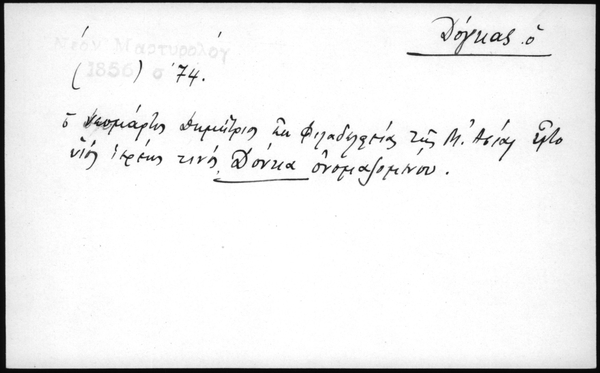 Δόγκας ὁ
Νέον Μαρτυρολόγ
1856 σ
( ) 74.
ὁ νεομάρτυς Δημήτριος ἐκ Φιλαδελφείας τῆς Μ. Ἀσίας ἦτο
υἱὸς ἱερέως τινός, Δόνκα ὀνομαζομένου.